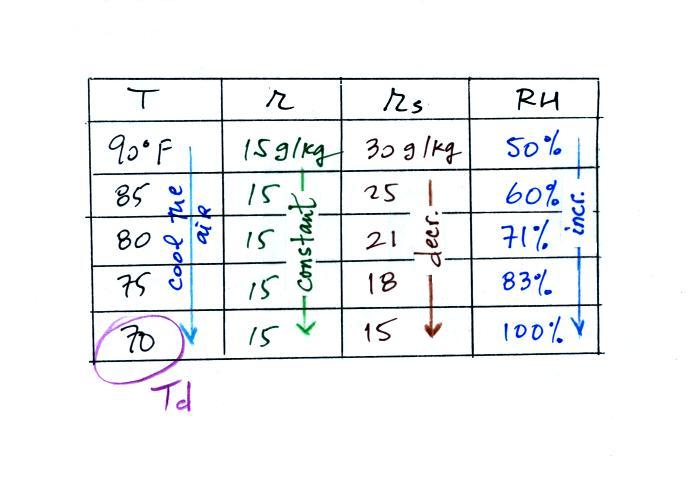 T r rs RH
90°F 15 g/kg 30 g/kg 50%
85 15 25 60%
80 15 21 71%
75 15 18 83%
70 15 15 100%
cool the
air
constant
decr.
incr.
Td